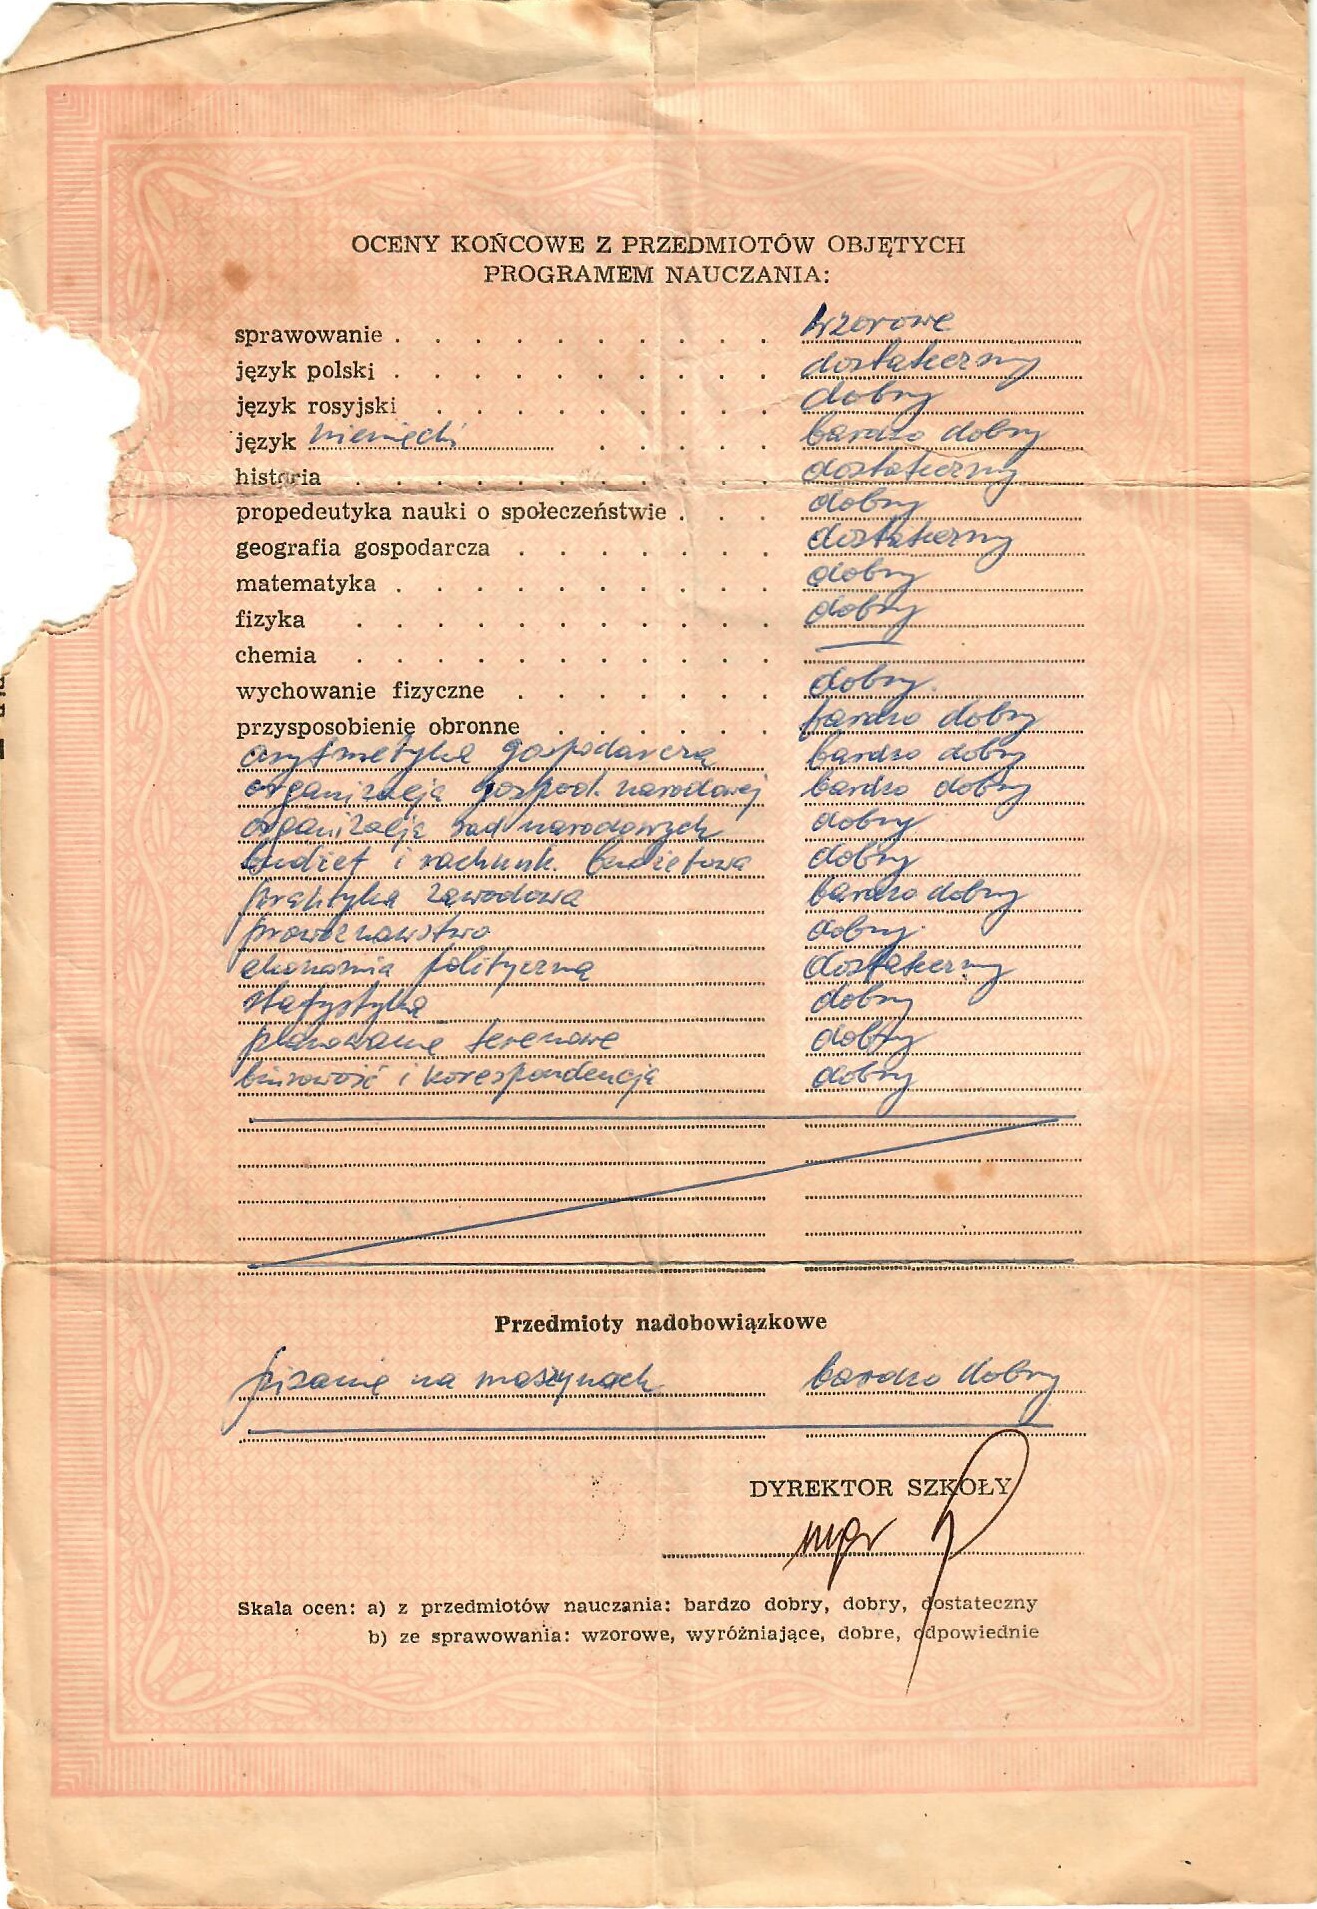 OCENY KOŃCOWE Z PRZEDMIOTÓW OBJĘTYCH
PROGRAMEM NAUCZANIA:
sprawowanie . . . . . . . . . . wzorowe
język polski . . . . . . . . . . dostateczny
język rosyjski . . . . . . . . . dobry
język niemiecki . . . . . bardzo dobry
historia . . . . . . . . . . . dostateczny
propedeutyka nauki o społeczeństwie . . . dobry
geografia gospodarcza . . . . . . . dostateczny
matematyka . . . . . . . . . . dobry
fizyka . . . . . . . . . . . dobry
chemia . . . . . . . . . . . —
wychowanie fizyczne . . . . . . . dobry.
przysposobienie obronne . . . . . . bardzo dobry
arytmetyka gospodarcza bardzo dobry
organizacja gospod. narodowej bardzo dobry
organizacja rad narodowych dobry
budżet i rachunk. budżetowa dobry
praktyka zawodowa bardzo dobry
prawoznawstwo dobry.
ekonomia polityczna dostateczny
statystyka dobry
planowanie terenowe dobry
biurowość i korespondencja dobry
Przedmioty nadobowiązkowe
pisanie na maszynach bardzo dobry
DYREKTOR SZKOŁY
mgr
Skala ocen: a) z przedmiotów nauczania: bardzo dobry, dobry, dostateczny
b) ze sprawowania: wzorowe, wyróżniające, dobre, odpowiednie